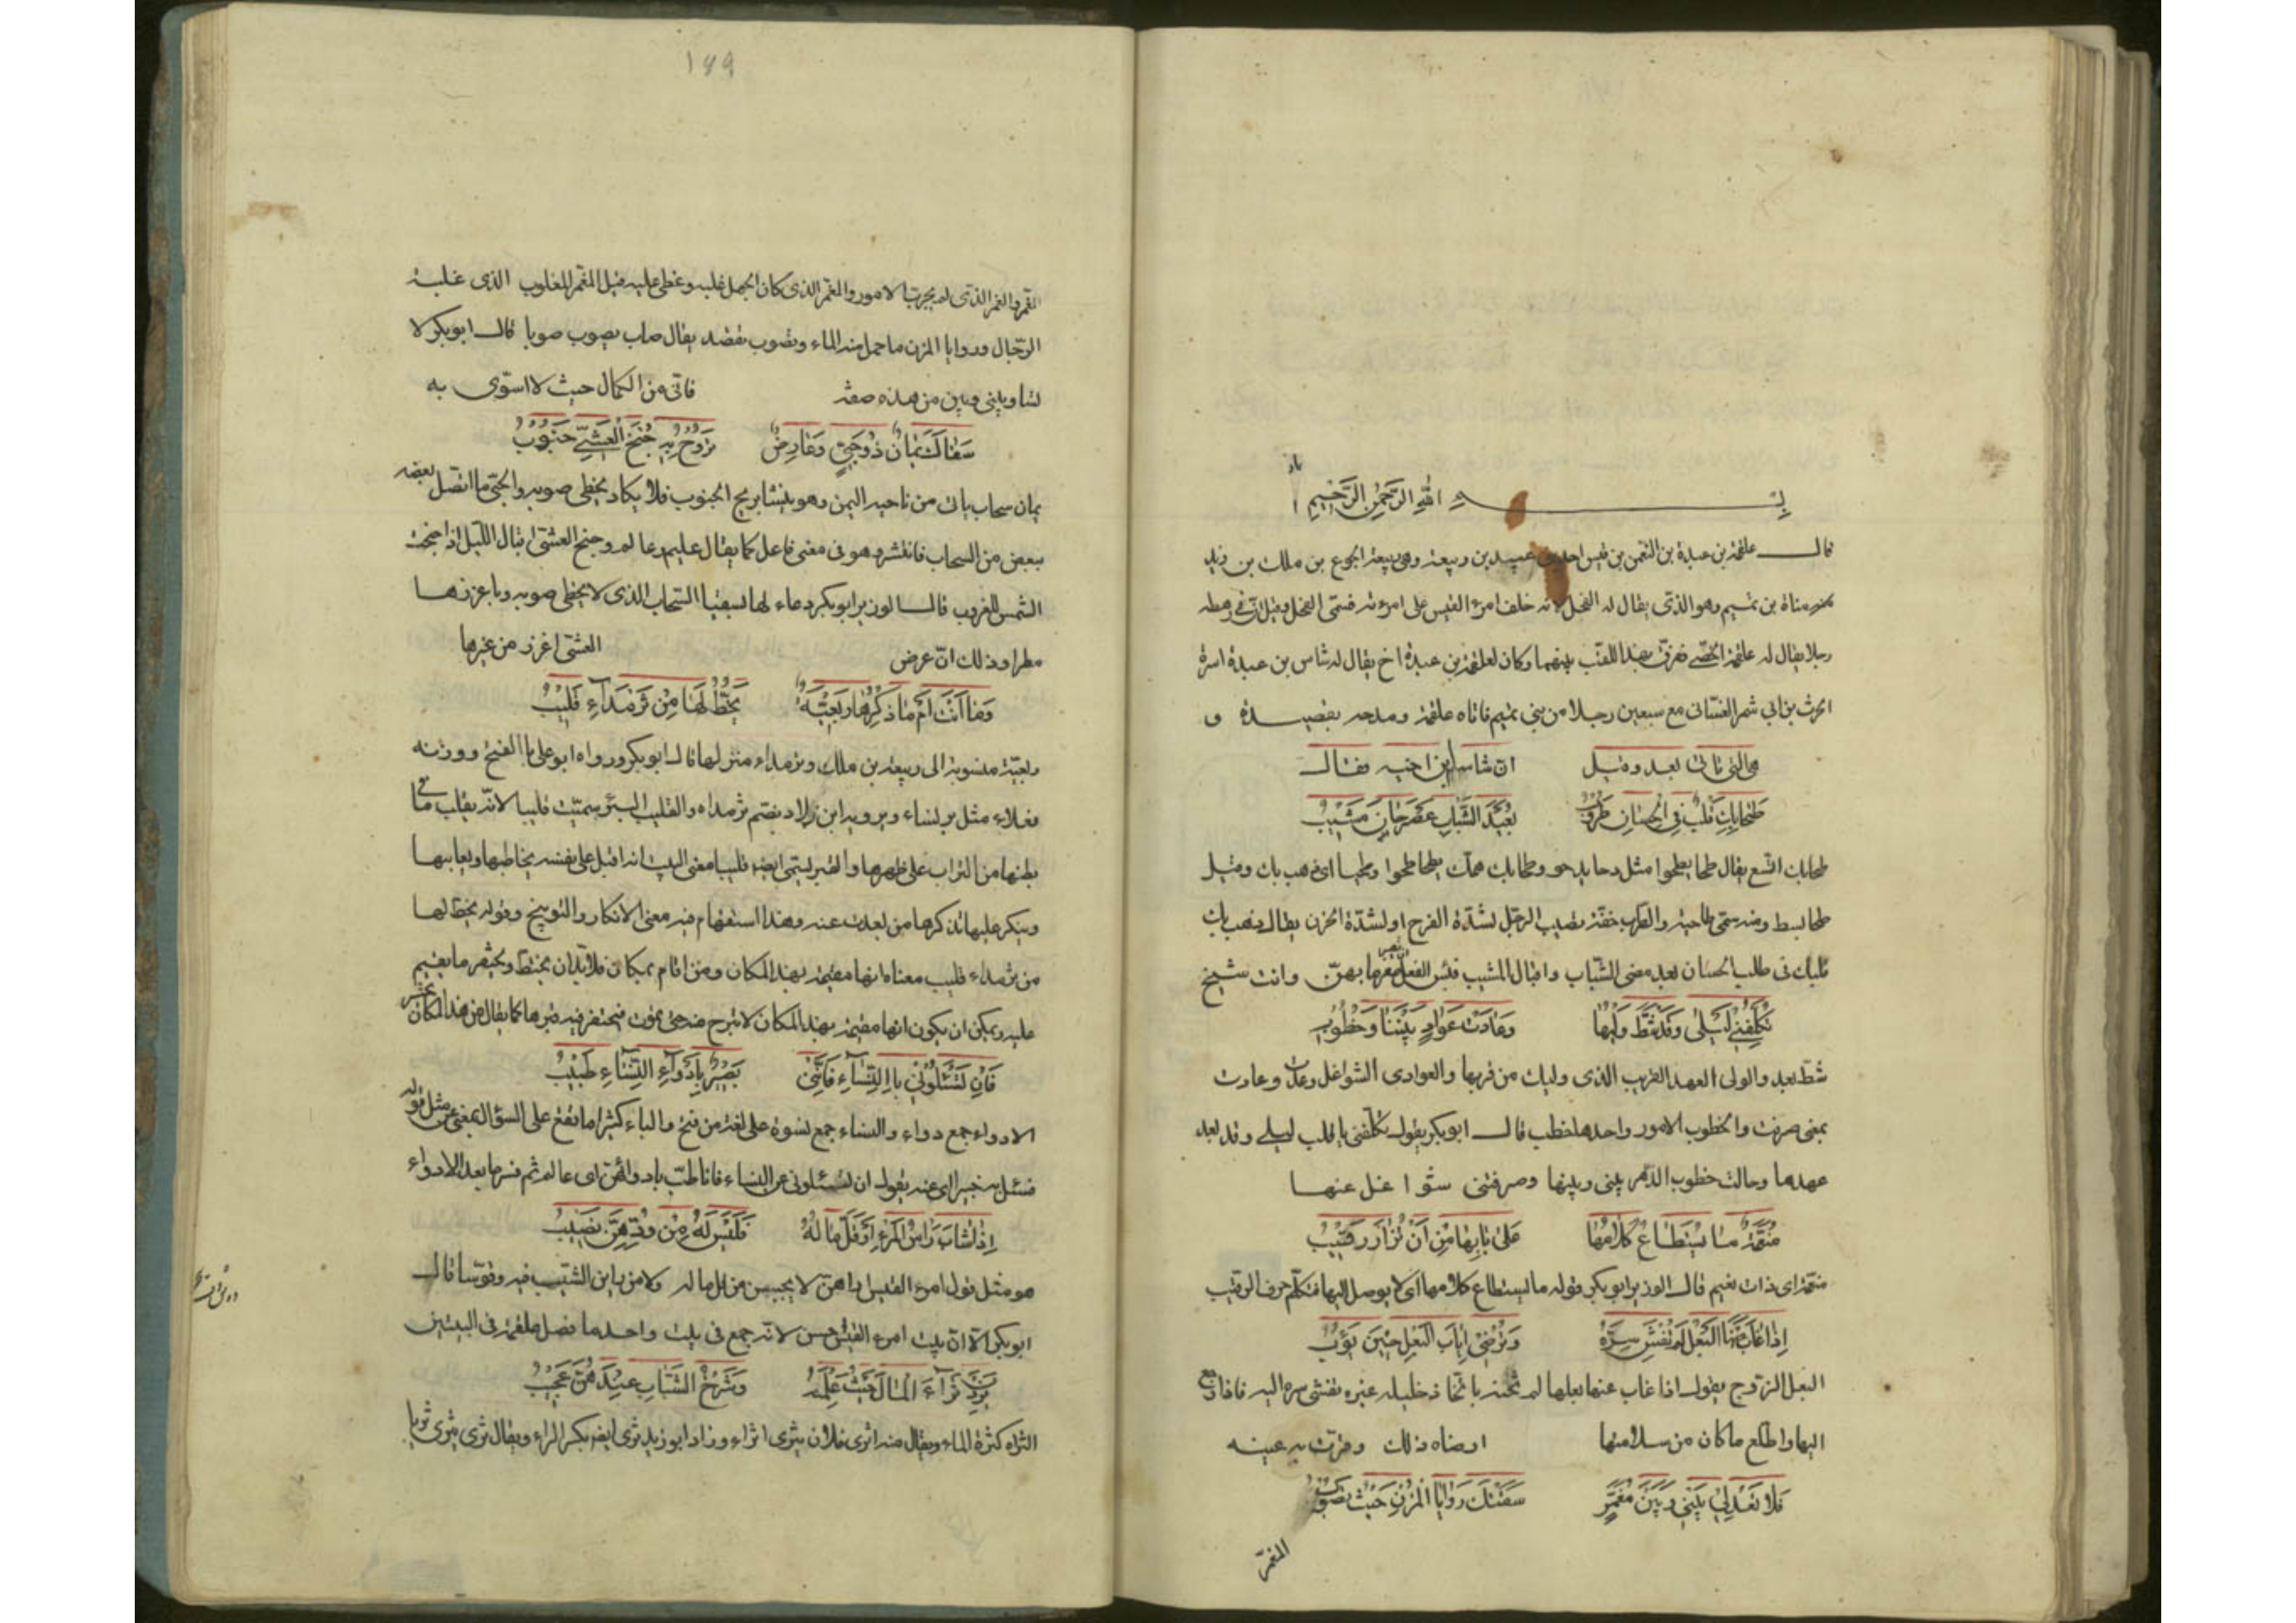 بسم الله الرحمن الرحيم
قال علقمة بن عبدة بن النعمن بن قيس احد بنى عبيد بن ربيعة وهى ربيعة الجوع بن ملك بن زيد
مناة بن تميم وهو الذى يقال له الفحل لانه خلف امرء القيس على امرءته فسمى الفحل وقيل ان فى رهطه
رجلا يقال له علقمة الخصى ففرق بهذا اللقب بينهما وكان لعلقمة بن عبدة اخ يقال له شاس بن عبدة اسره
الحرث بن ابي شمر الغسانى مع سبعين رجلا من بني تميم فاتاه علقمة ومدحه بقصيدة و
هى التى تاتى بعد وقيل ان شاسا ابن اخيه فقال
طَحَا بِكَ قَلْبٌ فِي الْحِسَانِ طَرُوبُ بُعَيْدَ الشَّبَابِ عَصْرَ حَانَ مَشِيبُ
طحا بك اتسع يقال طحا يطحوا مثل دحا يدحو وطحا بك همك يطحا طحوا وطحيا اى ذهب بك وقيل
طحا بسط ومنه سمى طاحية والطرب خفة تصيب الرجل لشدة الفرح او لشدة الحزن يقال ذهب بك
قلبك فى طلب الحسان بعد مضى الشباب واقبال المشيب فبئس الفعل بهن وانت شيخ
تُكَلِّفُنِي لَيْلَى وَقَدْ شَطَّ وَلْيُهَا وَعَادَتْ عَوَادٍ بَيْنَنَا وَخُطُوبُ
شط بعد والولى العهد القريب الذى وليك من قربها والعوادى الشواغل وعادت
بمعنى صرفت والخطوب الامور واحدها خطب قال ابو بكر يقول تكلفنى يا قلب ليلى وقد بعد
عهدها وحالت خطوب الدهر بينى وبينها وصرفتنى شواغل عنها
مُنَعَّمَةٌ مَا يُسْتَطَاعُ كَلَامُهَا عَلَى بَابِهَا مِنْ أَنْ تُزَارَ رَقِيبُ
منعمة اى ذات نعيم قال الوزير ابو بكر قوله ما يستطاع كلامها اى لا يوصل اليها فتكلم خوف الرقيب
إِذَا غَابَ عَنْهَا الْبَعْلُ لَمْ تُفْشِ سِرَّهُ وَتُرْضِى إِيَابَ الْبَعْلِ حِينَ يَؤُبُ
البعل الزوج يقول اذا غاب عنها بعلها لم تخنه باتخاذ خليل غيره تفشى سره اليه فاذا رجع
اليها واطلع ما كان من سلامتها ارضاه ذلك وقرت به عينه
فَلَا تَعْدِلِي بَيْنِي وَبَيْنَ مُغَمَّرٍ سَقَتْكَ رَوَايَا الْمُزْنِ حَيْثُ تَصُوبُ
المغمر
المغمر والغمر الذى لم يجرب الامور والمغمر الذى كان الجهل غلبه وغطى عليه قيل المغمر المغلوب الذى غلبه
الرجال وروايا المزن ما حمل منه الماء وتصوب تقصد يقال صاب يصوب صوبا قال ابو بكر لا
تساو بينى وبين من هذه صفته فانى من الكمال حيث لا اسوى به
سَقَاكَ يَمَانٍ ذُو حَبِيٍّ وَعَارِضٌ تَرُوحُ بِهِ جُنْحَ الْعَشِيِّ جَنُوبُ
يمان سحاب ياتى من ناحية اليمن وهو ينشا بريح الجنوب فلا يكاد يخطى صوبه والحبى ما اتصل بعضه
ببعض من السحاب فانتشر وهو فى معنى فاعل كما يقال عليم وعالم وجنح العشى اقبال الليل اذا جنحت
الشمس للغروب قال الوزير ابو بكر دعاء لها بسقيا السحاب الذى لا يخطى صوبه وباغزرها
مطرا وذلك ان عرض العشى اغزر من غيرها
وَمَا أَنْتَ أَمْ مَا ذِكْرُهَا رَبَعِيَّةٌ يُخَطُّ لَهَا مِنْ ثَرْمَدَاءِ قَلِيبُ
ربعية منسوبة الى ربيعة بن ملك وثرمداء منزلها قال ابو بكر ورواه ابو على بالفتح ووزنه
فعلاء مثل ويرويه ابن بضم ثرمداء والقليب البئر سميت قليبا لانه يقلب ما فى
بطنها من التراب على ظهرها والقبر يسمى ايضا قليبا معنى البيت انه اقبل على نفسه يخاطبها ويعاتبها
وينكر عليها تذكرها من بعدت عنه وهذا استفهام فيه معنى الانكار والتوبيخ وقوله يخط لها
من ثرمداء قليب معناه انها مقيمة بهذا المكان ومن اقام بمكان فلا بد ان يختط ويحتفر ما يقيم
عليه ويمكن ان يكون انها مقيمة بهذا المكان لا تبرح منه حتى تموت فيحتفر فيه قبرها كما يقال من هذا المكان يحشر
فَإِنْ تَسْئَلُونِي بِالنِّسَاءِ فَإِنَّنِي بَصِيرٌ بِأَدْوَاءِ النِّسَاءِ طَبِيبُ
الادواء جمع دواء والنساء جمع نسوة على لغة من فتح والباء كثيرا ما تقع على السؤال بمعنى عن مثل قوله
فسئل به خبيرا اى عنه يقول ان تسئلونى عن النساء فانا طب بادوائهن اى عالم ثم فسر ما بعد الادواء
إِذَا شَابَ رَأْسُ الْمَرْءِ أَوْ قَلَّ مَالُهُ فَلَيْسَ لَهُ مِنْ وُدِّهِنَّ نَصِيبُ
هو مثل قول امرء القيس اراهن لا يحببن من قل ماله ولا من راين الشيب فيه وقوسا قال
ابو بكر الا ان بيت امرء القيس حسن لانه جمع فى بيت واحد ما فصل علقمة فى البيتين
يُرِدْنَ ثَرَاءَ الْمَالِ حَيْثُ عَلِمْنَهُ وَشَرْخُ الشَّبَابِ عِنْدَهُنَّ عَجِيبُ
الثراء كثرة الماء ويقال منه اثرى فلان يثرى اثراء وزاد ابو زيد ثرى ايضا بكسر الراء ويقال ثرى يثرى ثريا
١٦٩